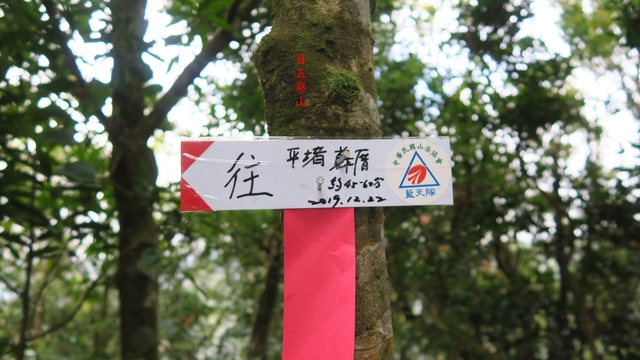 目五寮山
往
平堵
約45-60分
2019.12.22
中華民國山岳協會
藍天隊